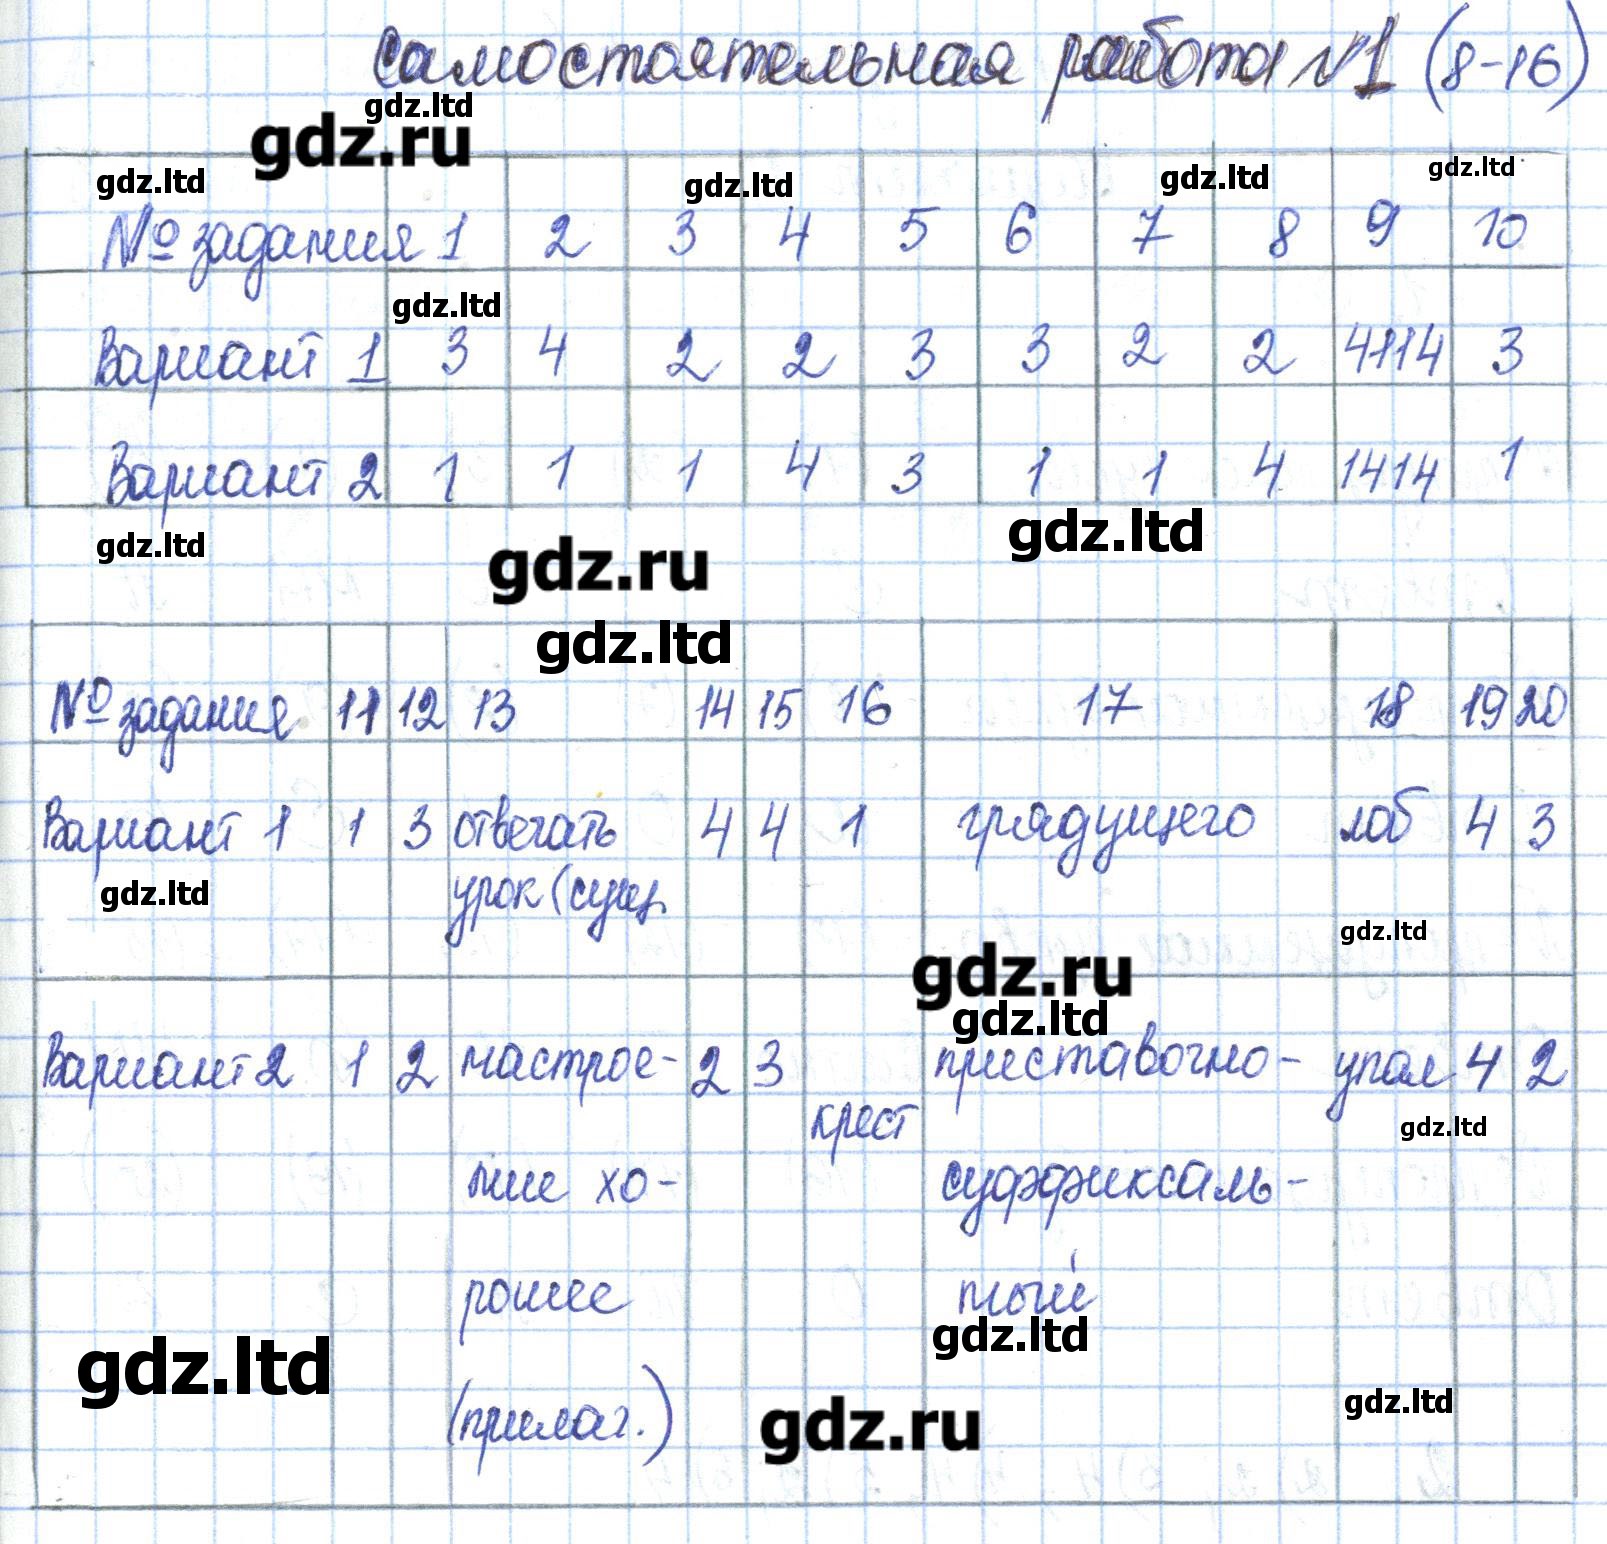 Самостоятельная работа №1 (8-16)
gdz.ltd
gdz.ru
gdz.ltd gdz.ltd gdz.ltd gdz.ltd
№ задания 1 2 3 4 5 6 7 8 9 10
gdz.ltd
Вариант 1 3 4 2 2 3 3 2 2 4114 3
Вариант 2 1 1 1 4 3 1 1 4 1414 1
gdz.ltd gdz.ru gdz.ltd
gdz.ltd
№ задания 11 12 13 14 15 16 17 18 19 20
Вариант 1 1 3 отвечать 4 4 1 грядущего лоб 4 3
gdz.ltd урок (сущ.
gdz.ltd
gdz.ru
gdz.ltd
Вариант 2 1 2 настрое- 2 3 приставочно- упал 4 2
крест gdz.ltd
ние хо- суффиксаль-
рошее ный
gdz.ltd gdz.ltd
(прилаг.) gdz.ru gdz.ltd